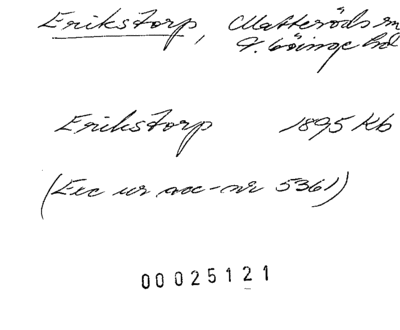 Erikstorp, Matteröds sn
V. Göinge hd
Erikstorp 1895 Kb
(Exc ur acc-nr 5361)
00025121